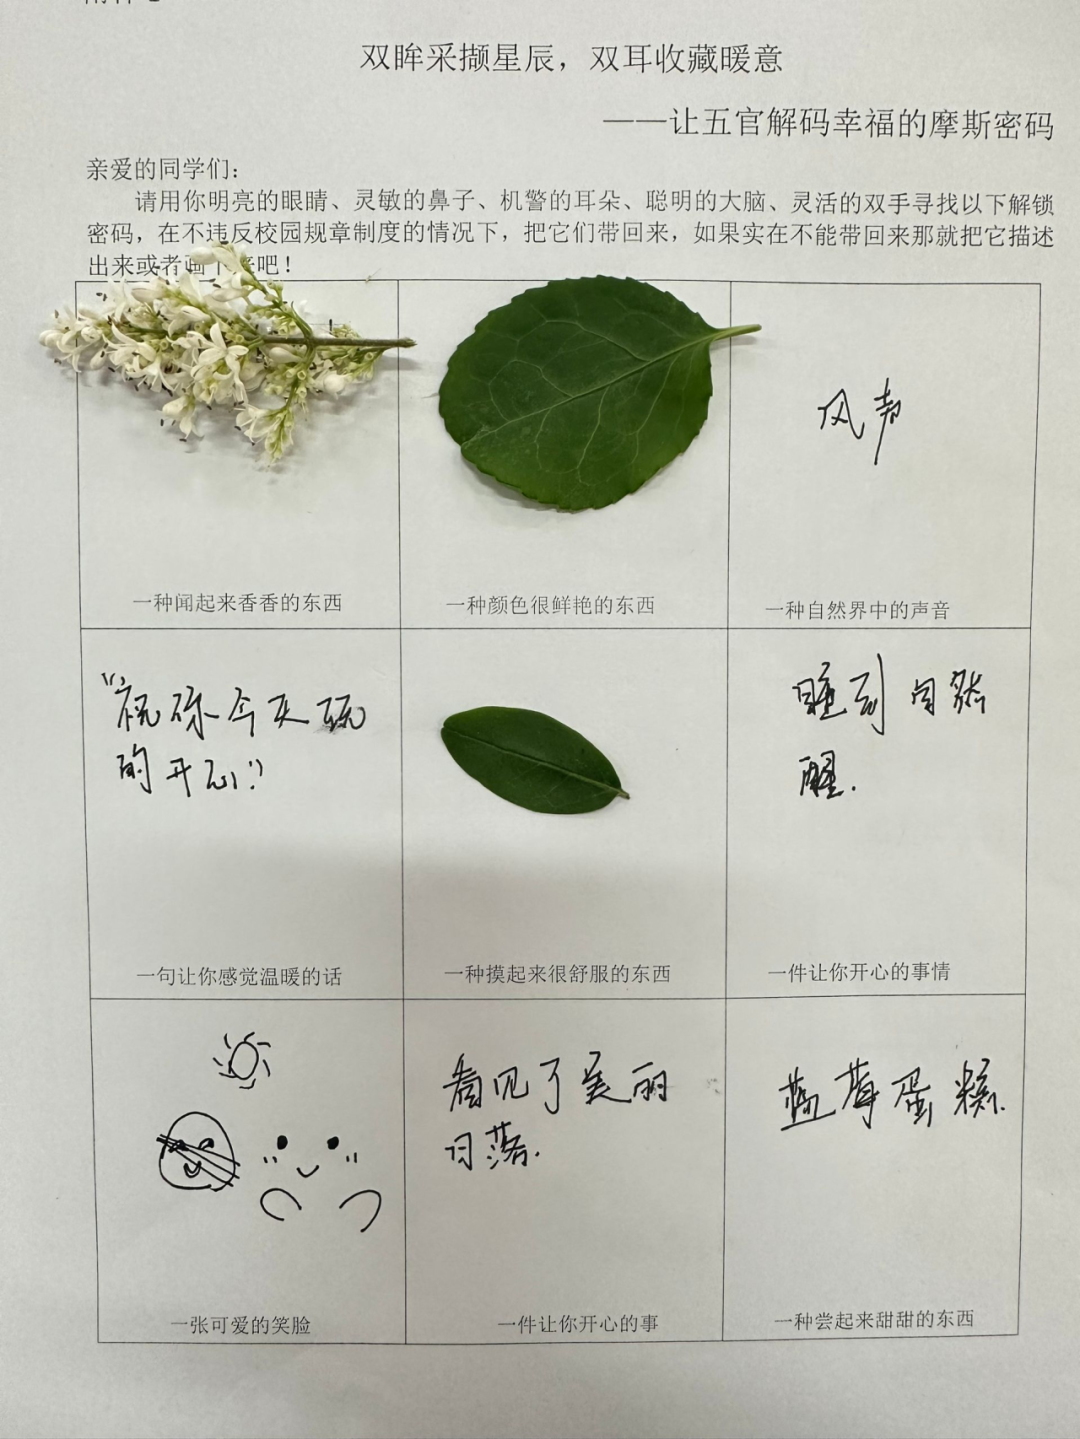 双眸采撷星辰，双耳收藏暖意
——让五官解码幸福的摩斯密码
亲爱的同学们：
请用你明亮的眼睛、灵敏的鼻子、机警的耳朵、聪明的大脑、灵活的双手寻找以下解锁
密码，在不违反校园规章制度的情况下，把它们带回来，如果实在不能带回来那就把它描述
出来或者画下来吧！
风声
一种闻起来香香的东西
一种颜色很鲜艳的东西
一种自然界中的声音
“祝你今天玩
的开心”
睡到自然
醒.
一句让你感觉温暖的话
一种摸起来很舒服的东西
一件让你开心的事情
看见了美丽
日落.
蓝莓蛋糕.
一张可爱的笑脸
一件让你开心的事
一种尝起来甜甜的东西